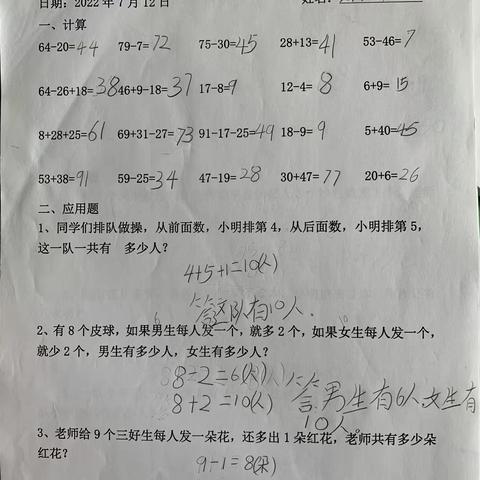 日期：2022 年 7 月 12 日
一、计算
64-20=44 79-7=72 75-30=45 28+13=41 53-46=7
64-26+18=38 46+9-18=37 17-8=9 12-4=8 6+9=15
8+28+25=61 69+31-27=73 91-17-25=49 18-9=9 5+40=45
53+38=91 59-25=34 47-19=28 30+47=77 20+6=26
二、应用题
1、同学们排队做操，从前面数，小明排第 4，从后面数，小明排第 5，
这一队一共有 多少人？
4+5+1=10(人)
答：这队有10人.
2、有 8 个皮球，如果男生每人发一个，就多 2 个，如果女生每人发一个，
就少 2 个，男生有多少人，女生有多少人？
8-2=6(人)
8+2=10(人)
答：男生有6人女生有
10人。
3、老师给 9 个三好生每人发一朵花，还多出 1 朵红花，老师共有多少朵
红花？
9-1=8(朵)